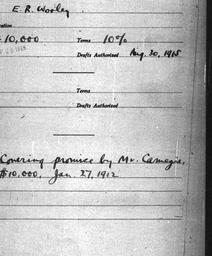 E. R. Worley
$ 10,000 Terms 10%
Drafts Authorized Aug. 30, 1915
Terms
Drafts Authorized
Covering promise by Mr. Carnegie,
$10,000, Jan. 27, 1912